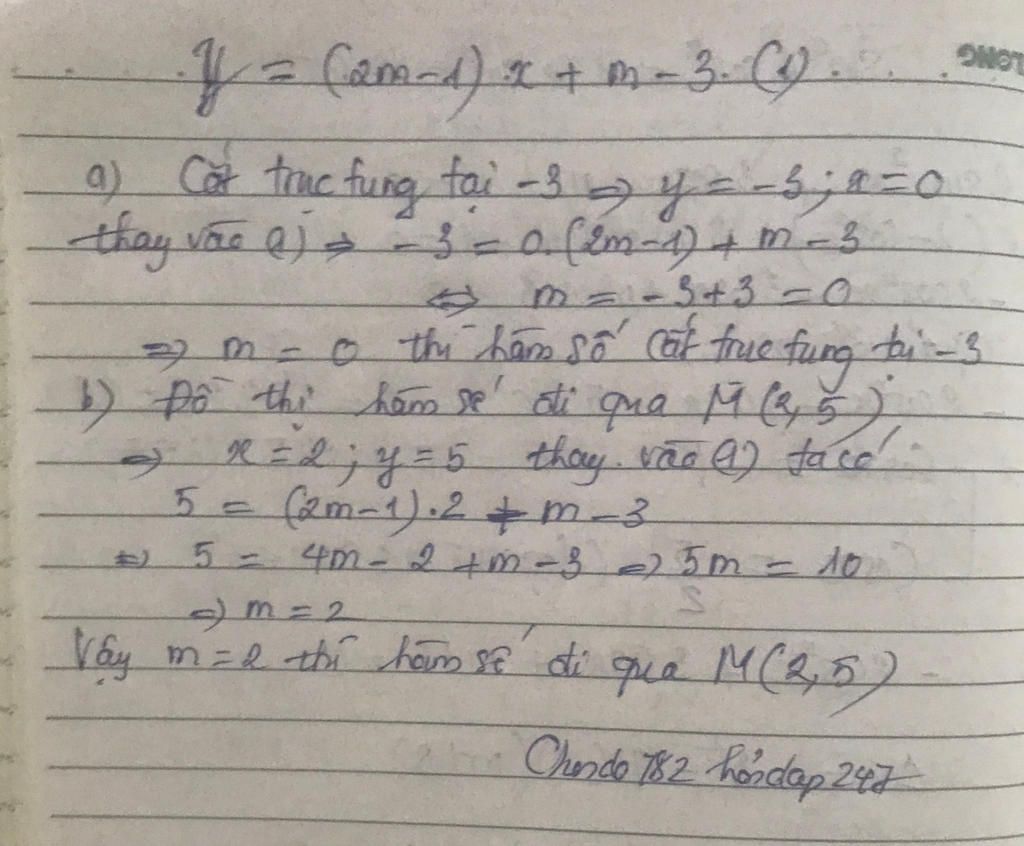 LONG
y = (2m-1).x + m - 3. (1)
a) Cắt trục tung tại -3 => y = -3; x = 0
thay vào (1) => -3 = 0.(2m-1) + m - 3
<=> m = -3+3 = 0
=> m = 0 thì hàm số cắt trục tung tại -3
b) Đồ thị hàm số đi qua M(2,5)
=> x = 2; y = 5 thay vào (1) ta có
5 = (2m-1).2 + m - 3
=> 5 = 4m - 2 + m - 3 => 5m = 10
=> m = 2
Vậy m = 2 thì hàm số đi qua M(2,5)
782 hỏi dap 247